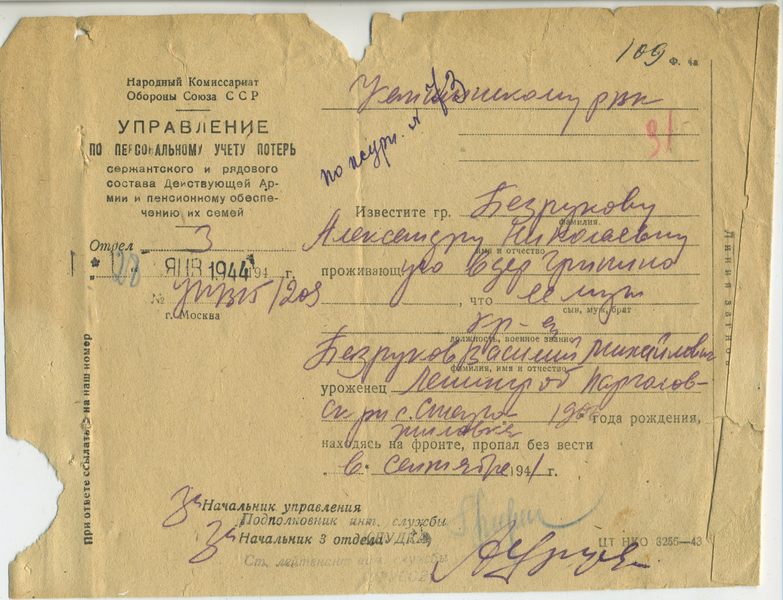 109 Ф. 4а
Народный Комиссариат
Обороны Союза ССР
УПРАВЛЕНИЕ
ПО ПЕРСОНАЛЬНОМУ УЧЕТУ ПОТЕРЬ
сержантского и рядового
состава Действующей Ар-
мии и пенсионному обеспе-
чению их семей
Отдел 3
28 ЯНВ 1944 194 г.
№
г. Москва
При ответе ссылаться на наш номер
рвк
по журн. №
91
Известите гр. Безрукову
фамилия.
Александру Николаевну
имя и отчество
проживающ ую в дер Гришино
, что ее муж
сын, муж, брат
кр-ец
должность, военное звание
Безруков Василий Михайлович
фамилия, имя и отчество
уроженец Ленингр об Парголов-
ск рн с. Стара
190 года рождения,
жиловка
находясь на фронте, пропал без вести
в сентябре 1941 г.
Линия загиба
Зам Начальник управления
Подполковник инт. службы
Начальник 3 отдела
Ст. лейтенант инт. службы
ЦТ НКО 3266—43